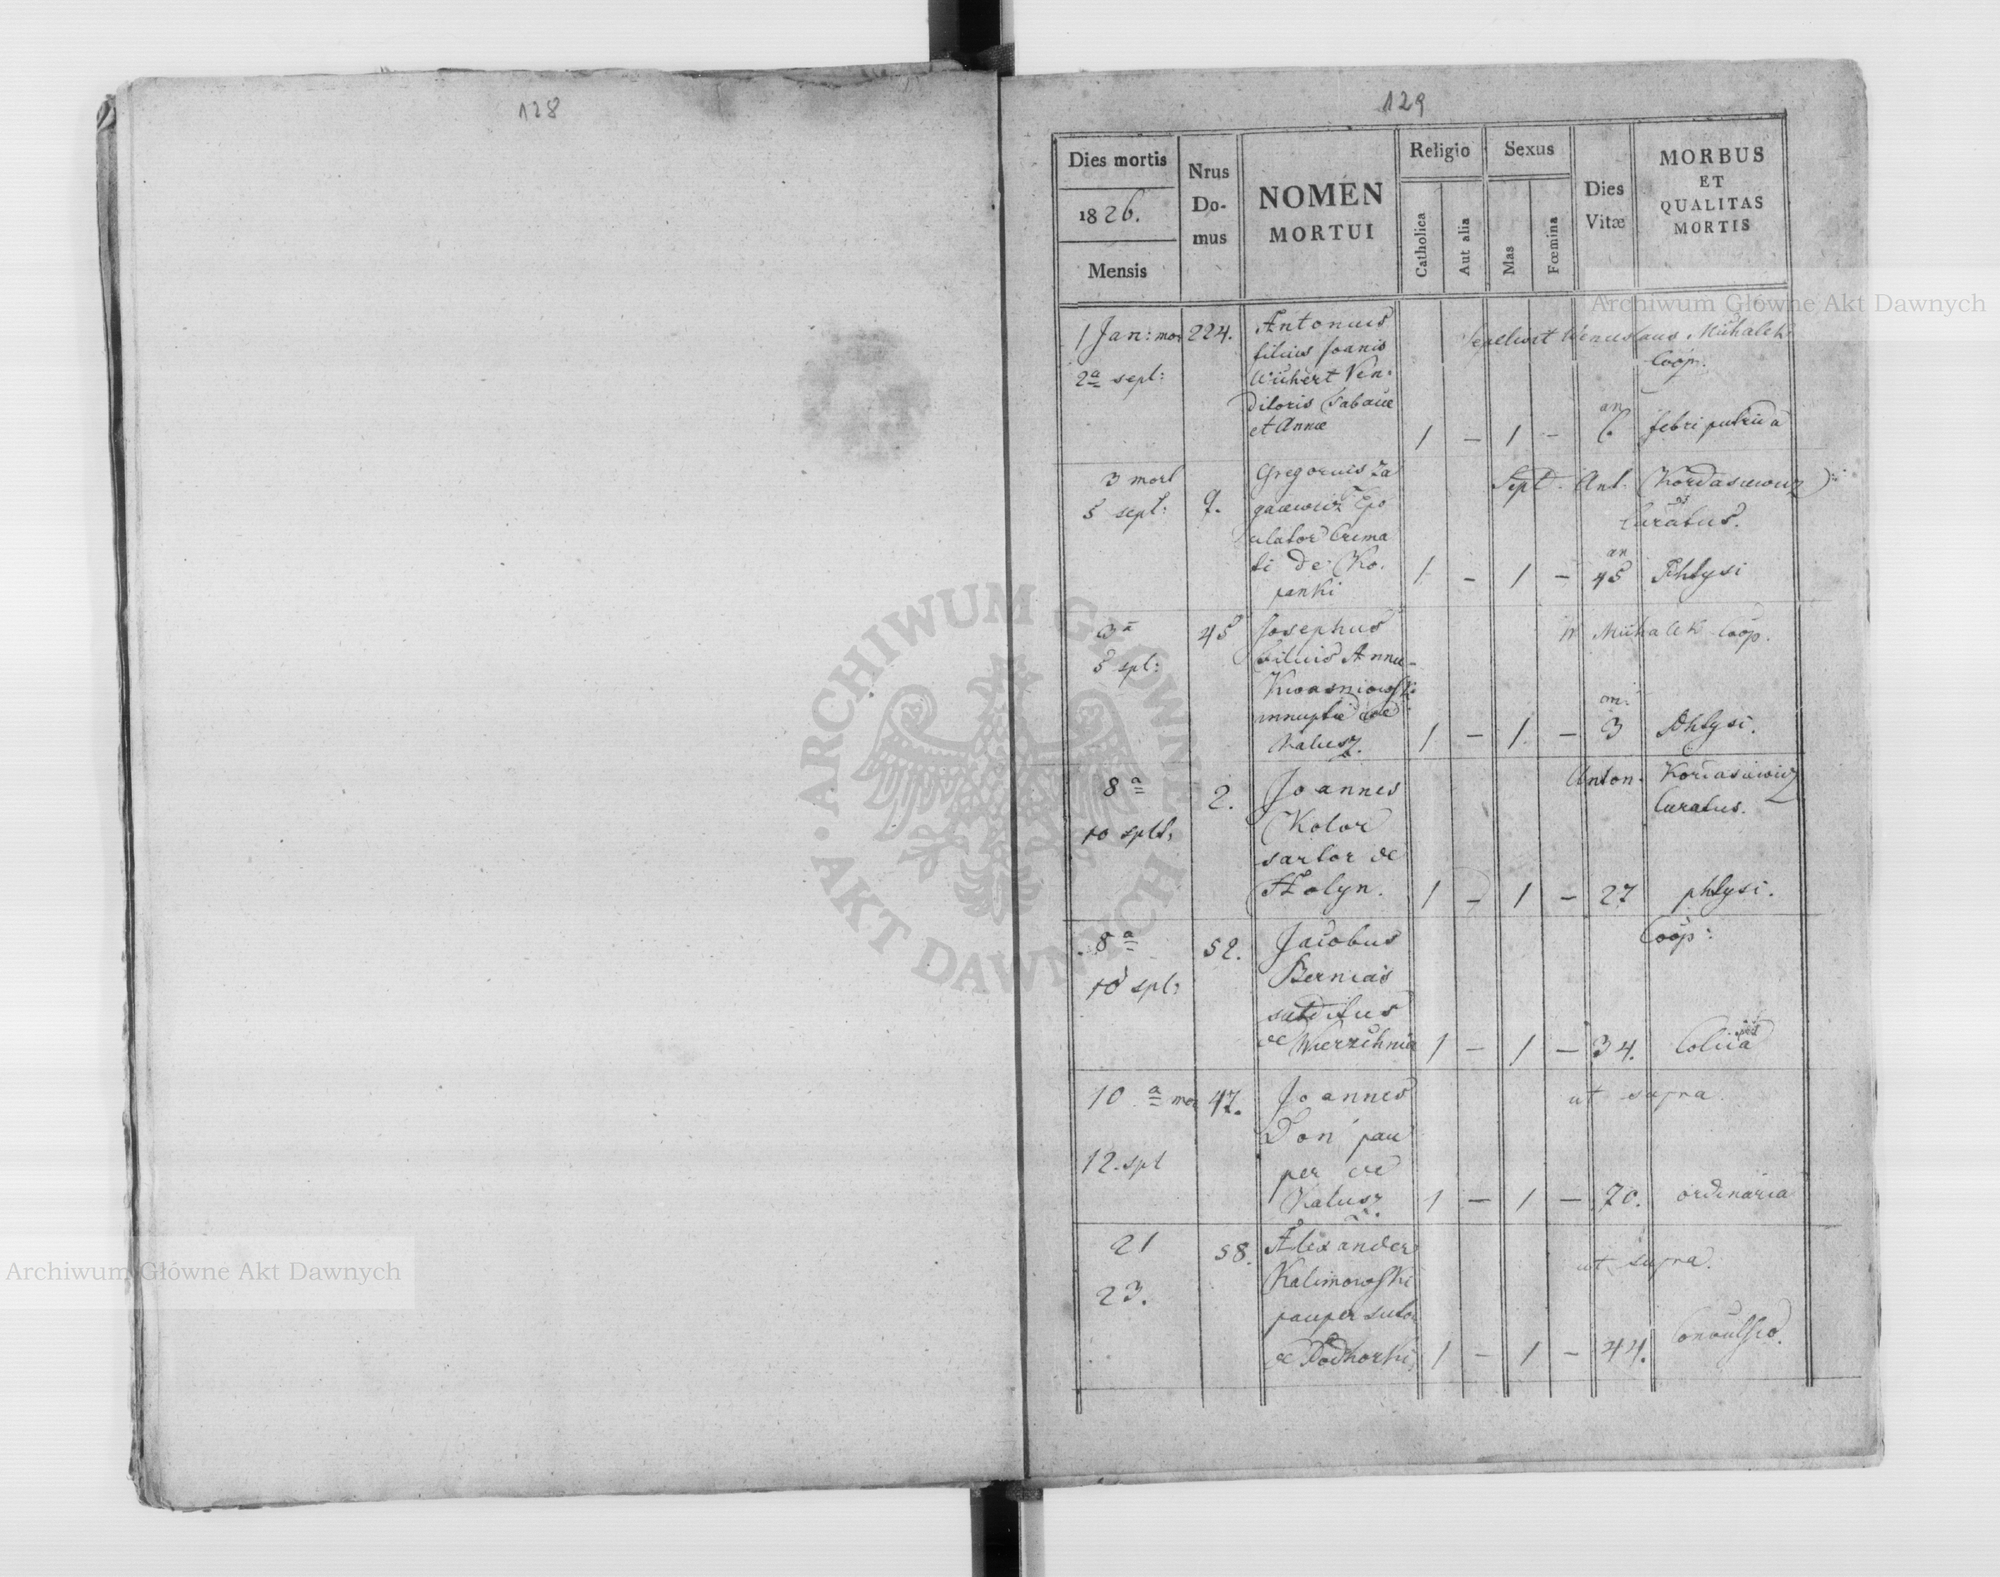 128
129
Dies mortis
1826.
Mensis
Nrus
Do-
mus
NOMEN
MORTUI
Religio
Catholica
Aut alia
Sexus
Mas
Fœmina
Dies
Vitæ
MORBUS
ET
QUALITAS
MORTIS
1 Jan: mor
2a sept:
224.
Antonius
filius Joanis
Wichert Ven-
ditoris Tabacae
et Annae
Sepelivit Wenceslaus Michalek
Coop.
1 — 1 —
an
6.
febri putrida
3 mort
5 sept:
9.
Gregorius Za
gaiewicz
ulator Crema
ti de Ko.
panki
Sept. Ant. Kordasiewicz
Curatus.
1 — 1 —
an
45
Phtysi
3a
5 spl:
45
Josephus
filius Annae
Kwasniowski
innuptae de
Kalusz.
W Michalek Coop.
1 — 1 —
m:
3
Phtysi.
8a
10 splt,
2.
Joannes
Kotor
sartor de
Holyn.
Anton. Kordasiewicz
Curatus.
1 — 1 — 27
phtysi.
8a
10 spl:
52.
Jacobus
Bernias
subditus
de Wierzchnia
Coop:
1 — 1 — 34.
Colica
10 a mor
12. spt
47.
Joannes
Don pau
per de
Kalusz.
ut supra
1 — 1 — 70.
ordinaria
21
23.
58.
Alexander
Kalimowski
pauper sutor
de Podhorki
ut supra.
1 — 1 — 44.
Convulsio.
Archiwum Główne Akt Dawnych
Archiwum Główne Akt Dawnych
ARCHIWUM GŁÓWNE AKT DAWNYCH